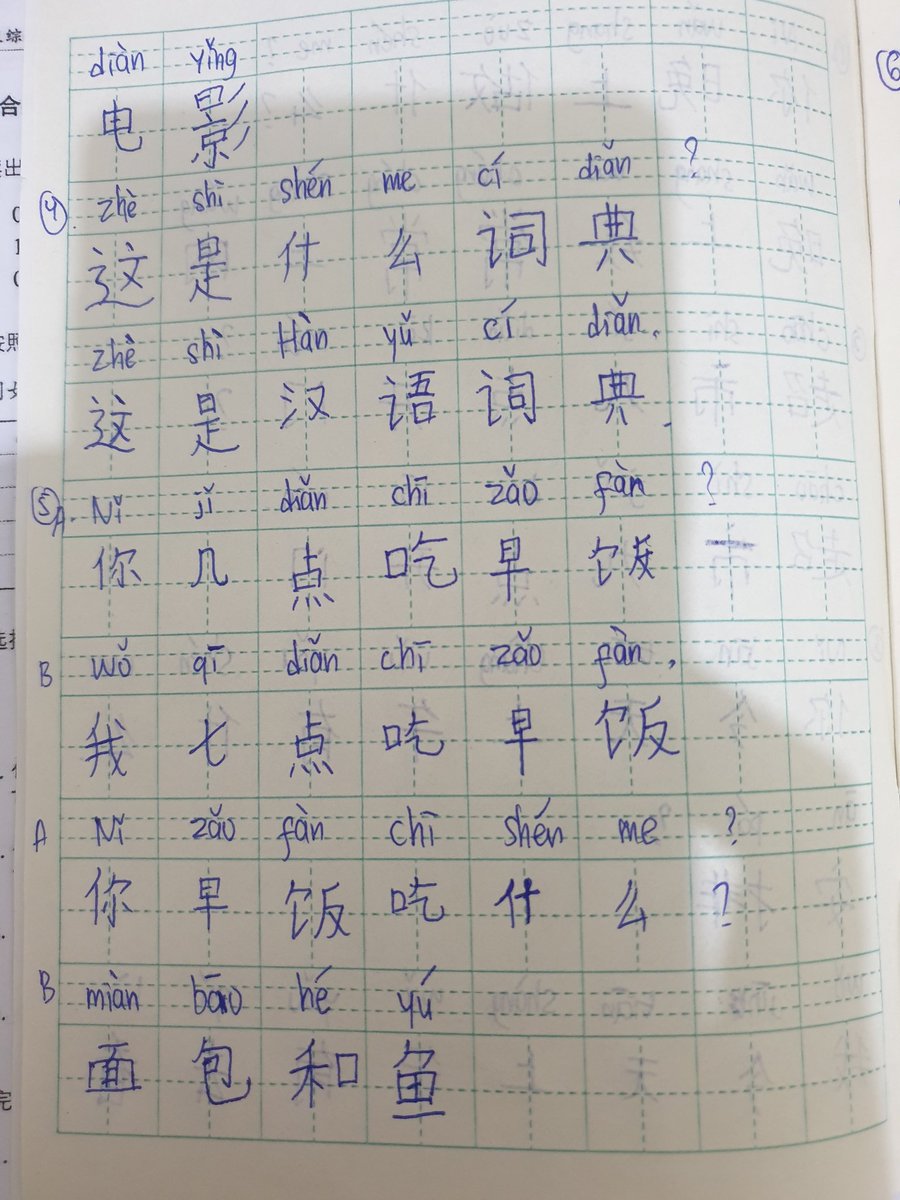 diàn yǐng
电 影
④. zhè shì shén me cí diǎn ?
这 是 什 么 词 典
zhè shì Hàn yǔ cí diǎn.
这 是 汉 语 词 典 .
⑤ A. Nǐ jǐ diǎn chī zǎo fàn ?
你 几 点 吃 早 饭
B wǒ qī diǎn chī zǎo fàn.
我 七 点 吃 早 饭
A Nǐ zǎo fàn chī shén me ?
你 早 饭 吃 什 么 ?
B miàn bāo hé yú
面 包 和 鱼
⑥